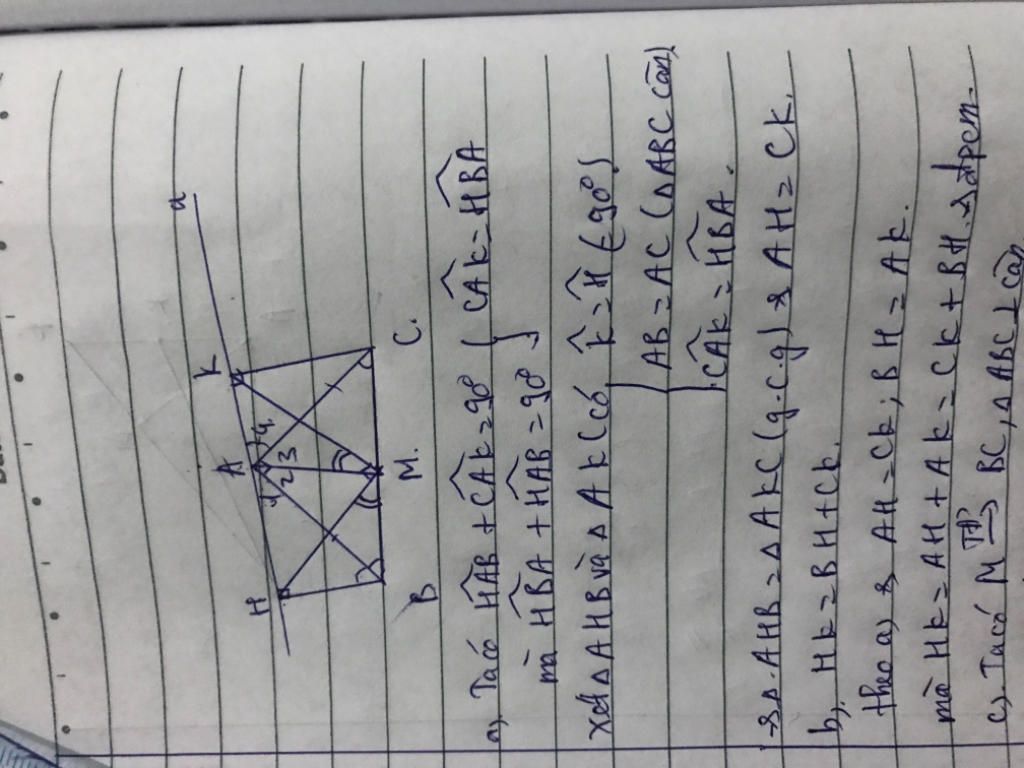 a
K
A
H
1 2 3 4
B
M.
C.
a), Ta có HAB + CAK = 90° } CAK = HBA
mà HBA + HAB = 90°
xét ΔAHB và ΔAKC có K = H (= 90°)
AB = AC (ΔABC cân)
CAK = HBA.
→ Δ.AHB = ΔAKC (g.c.g) → AH = CK.
b), HK = BH + CK.
theo a) → AH = CK; BH = AK.
mà HK = AH + AK = CK + BH. → đpcm.
c). Ta có M TĐ→ BC, ΔABC ⊥ cân